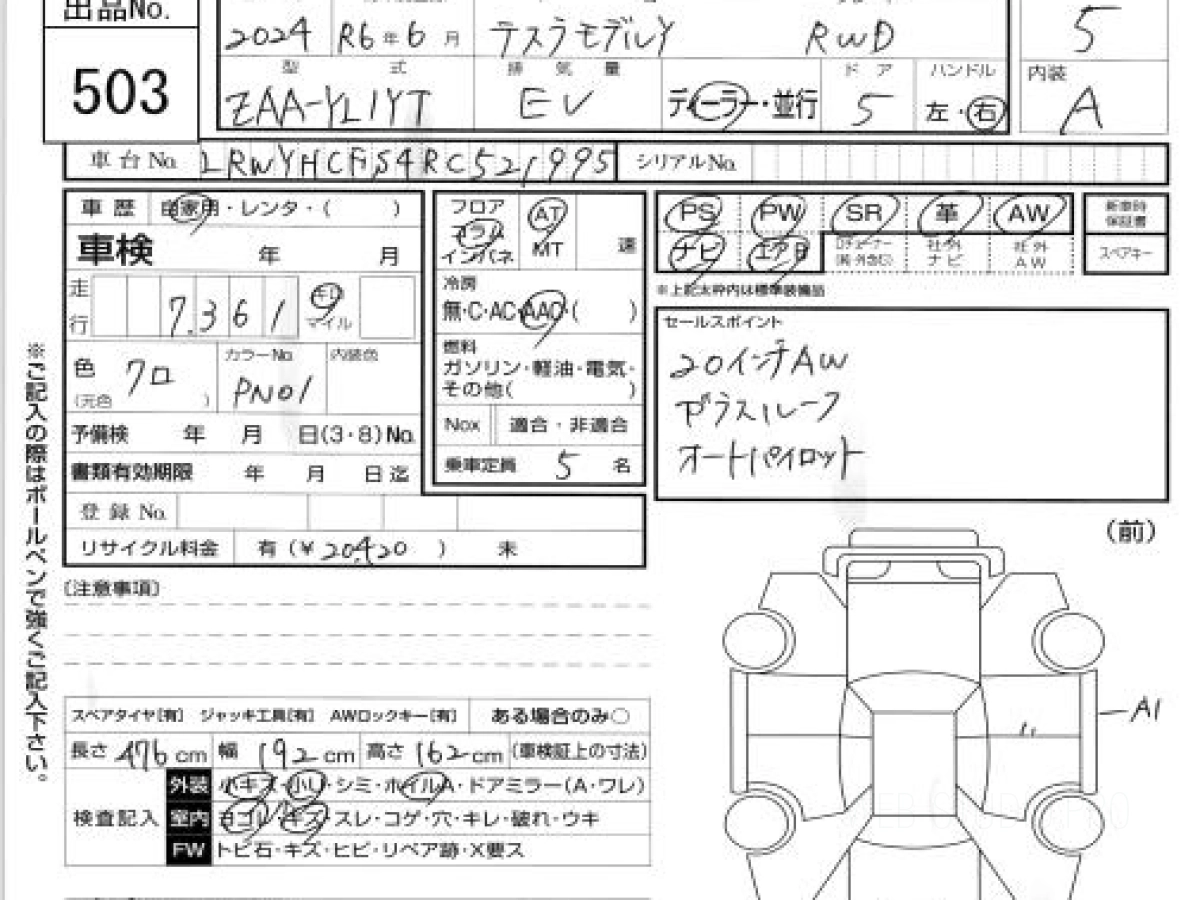 出品No.
503
2024 R6年6月 テスラモデルY RWD 5
型式 排気量 ドア ハンドル 内装
ZAA-YL1YT EV ディーラー・並行 5 左・右 A
車台No. LRWYHCFS4RC521995 シリアルNo.
車歴 自家用・レンタ・( )
車検 年 月
走行 7,361 キロ マイル
色 クロ カラーNo. PN01 内装色
(元色 )
予備検 年 月 日(3・8)No.
書類有効期限 年 月 日迄
登録No.
リサイクル料金 有(¥20,420) 未
フロア コラム インパネ AT MT 速
冷房
無・C・AC・AAC・( )
燃料
ガソリン・軽油・電気・
その他( )
Nox 適合・非適合
乗車定員 5 名
PS PW SR 革 AW 新車時保証書
ナビ エアB 社外ナビ 社外AW スペアキー
※上記太枠内は標準装備品
セールスポイント
20インチAW
ガラスルーフ
オートパイロット
※ご記入の際はボールペンで強くご記入下さい。
〔注意事項〕
(前)
A1
スペアタイヤ[有] ジャッキ工具[有] AWロックキー[有] ある場合のみ○
長さ 476cm 幅 192cm 高さ 162cm (車検証上の寸法)
検査記入
外装 小キズ・小U・シミ・ホイルA・ドアミラー(A・ワレ)
室内 ヨゴレ・キズ・スレ・コゲ・穴・キレ・破れ・ウキ
FW トビ石・キズ・ヒビ・リペア跡・X要ス